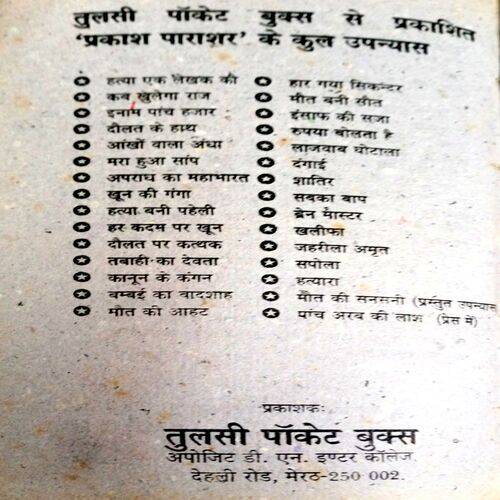 तुलसी पॉकेट बुक्स से प्रकाशित
'प्रकाश पाराशर' के कुल उपन्यास
हत्या एक लेखक की
कब खुलेगा राज
इनाम पांच हजार
दौलत के हाथ
आंखों वाला अंधा
मरा हुआ सांप
अपराध का महाभारत
खून की गंगा
हत्या बनी पहेली
हर कदम पर खून
दौलत पर कत्थक
तबाही का देवता
कानून के कंगन
बम्बई का बादशाह
मौत की आहट
हार गया सिकन्दर
मौत बनी सौत
इंसाफ की सजा
रुपया बोलता है
लाजवाब घोटाला
दंगाई
शातिर
सबका बाप
ब्रेन मास्टर
खलीफा
जहरीला अमृत
सपोला
हत्यारा
मौत की सनसनी (प्रस्तुत उपन्यास
पांच अरब की लाश (प्रेस में)
प्रकाशक:
तुलसी पॉकेट बुक्स
अपोजिट डी. एन. इण्टर कॉलेज
देहली रोड, मेरठ-250 002.